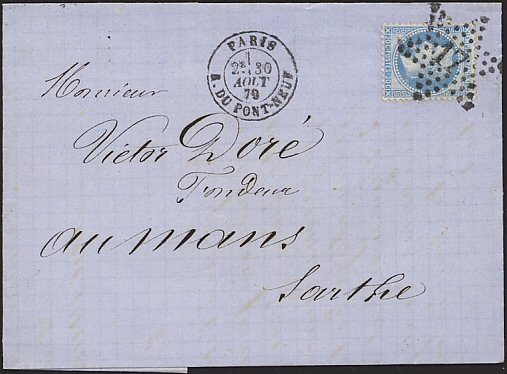 PARIS
1
2E 30
AOUT
70
R. DU PONT-NEUF
Monsieur
Victor Doré
Fondeur
au mans
Sarthe